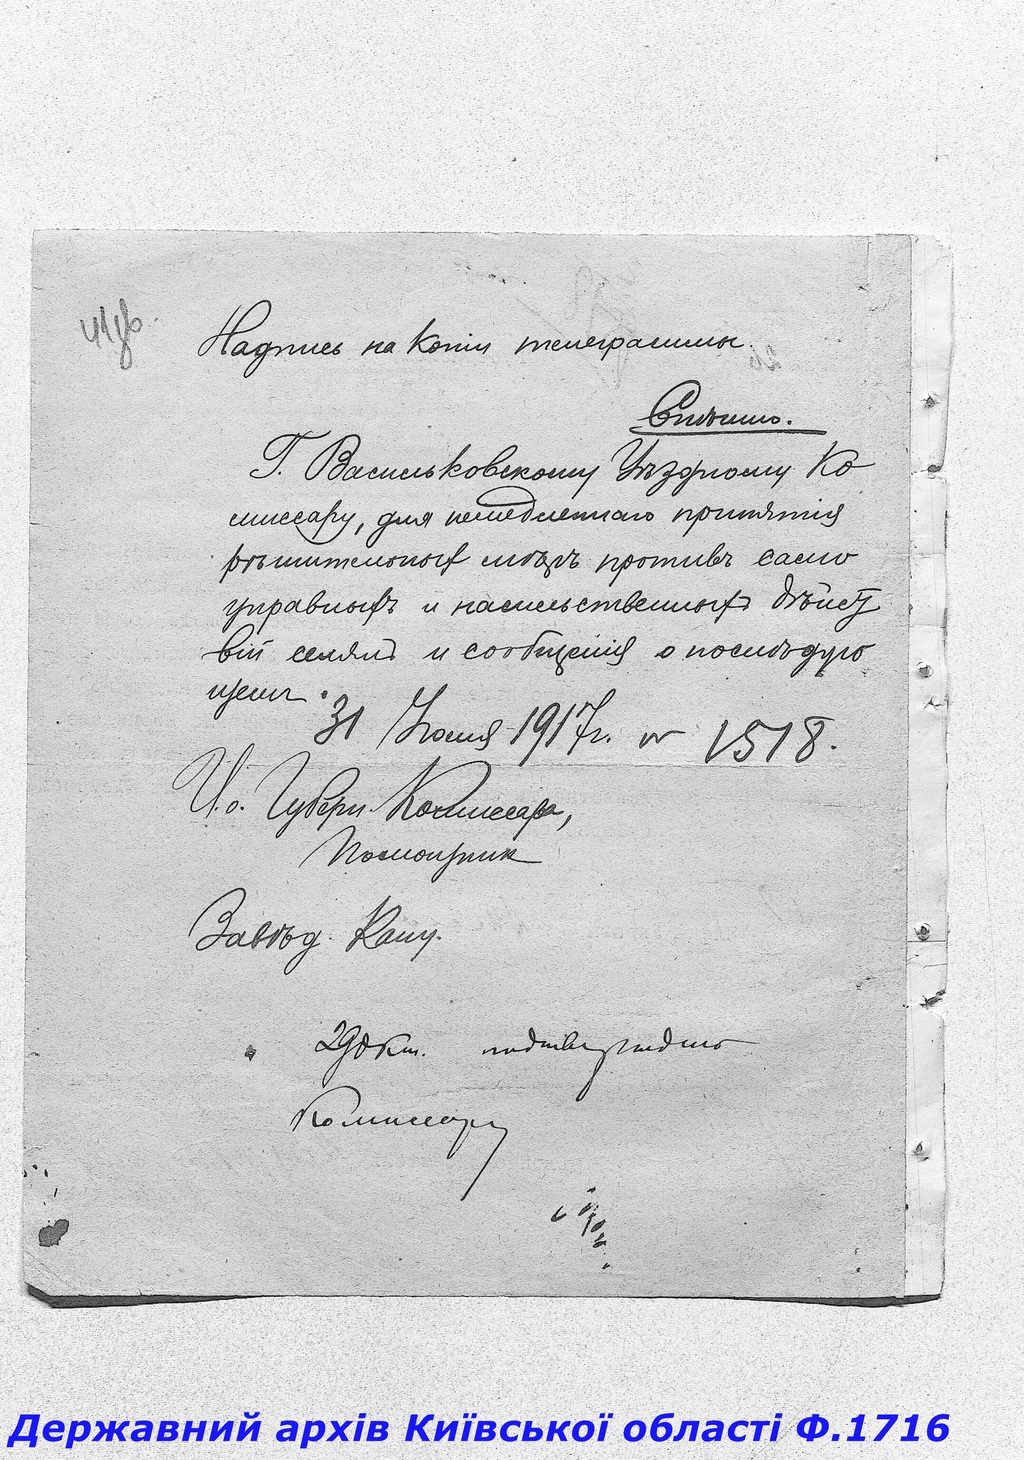 Надпись на копіи телеграммы.
Спѣшно.
Г. Васильковскому Уѣздному Ко
миссару, для немедленнаго принятія
рѣшительныхъ мѣръ противъ само
управныхъ и насильственныхъ дѣйст
вій селянъ и сообщенія о послѣдую
щемъ.
31 Іюля 1917г. № 1518.
И.о. Губерн. Комиссара,
Помощник
Завѣд. Канц.
29 Окт. подтверждено
Комиссару
Державний архів Київської області Ф.1716